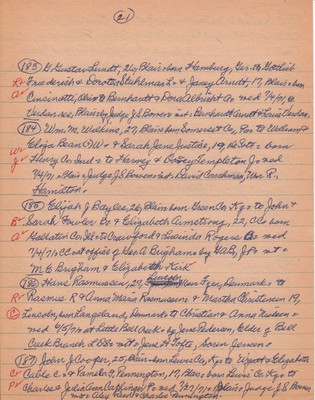 (21)
(183) G. Gustav Arndt, 26, Blair = born Hamburg, Ger. to Gottlieb
Ar Friederich & Dorotea Stahlman & Janey Arndt, 17, Blair = born
a Cincinatti, Ohio to Bernhardt & Dora Albright = med 7/4/71 @
Blair by Judge J S Bowen wit: Bernhardt Arndt & Louis
(184) Wm. M. Watkins, 27, Blair = born Somerset Co, to William &
W Eliza Bean & Sarah Jane Justice, 19, = born
J Henry Co. Ind. to Harvey & Betsey Templeton J = med
7/4/71 = Blair = Judge J S Bowen = wit: David Mrs R.
Hamilton =
(185) Elijah J Baylis, 26, Blair born Green Co Ky = to John &
B Sarah Fowler & Elizabeth Armstrong, 22, CC born
A Gallatin Co, Ill = to Crawford & Lucinda Rogers = med
7/4/71 CC at office of Geo A Brigham = by GAB, JP = wit =
M E Brigham & Elizabeth Kirk
(186) Hans Rasmussen, 29, Lincoln born Denmark = to
R Rasmus R & Anna Maria Rasmussen & Marthn Christensen 19,
C Lincoln, born Langeland, Denmark to Christian & Anne Nielsen =
med 4/5/71 at Little Bell Creek = by Jens Petersen, Elder of Bell
Creek Branch LDS = wit = Jens A Tofte, Soren Jensen =
(187) John J Cooper, 25, Blair = born Lewis Co, Ky = to Wyatt & Elizabeth
C Cable C = & Pamela O, Pennington, 17, Blair = born Lewis Co. Ky = to
P Charles & Julia Ann P = med 7/27/71 = Blair = Judge J S Bowen
= wit = Alex Reed & Charles Pennington =